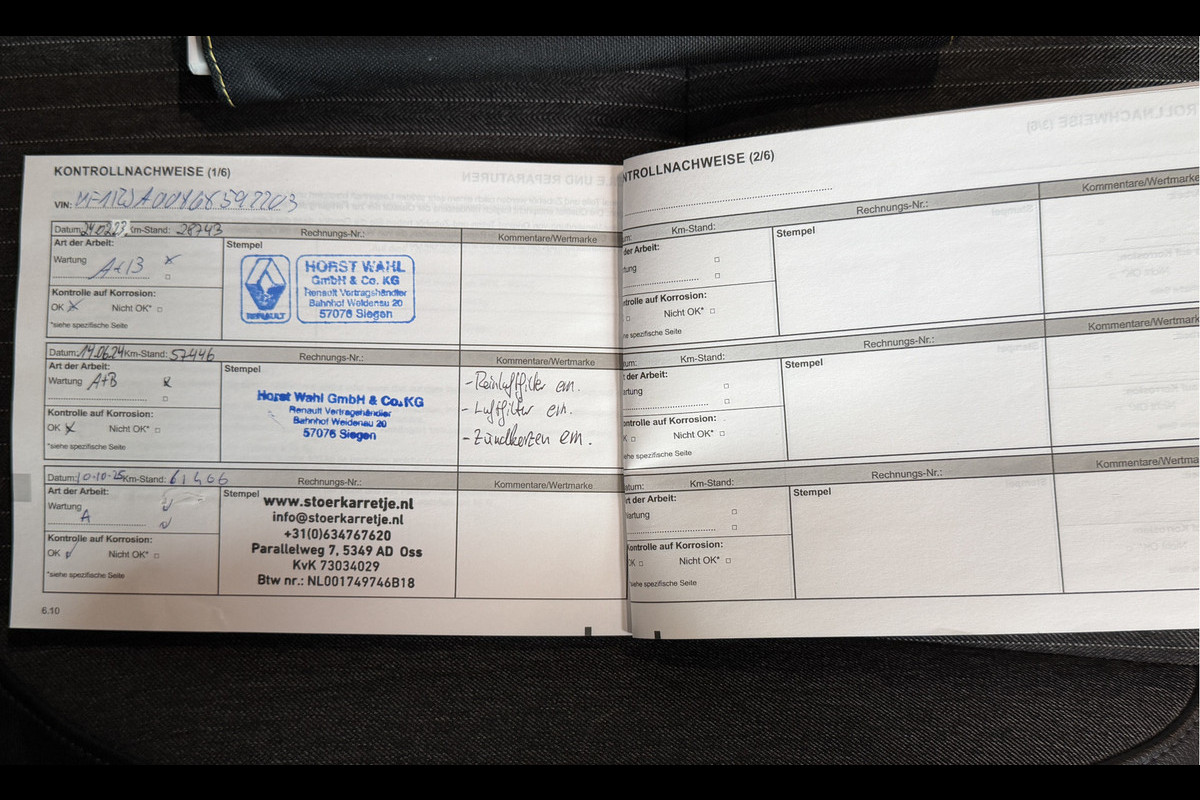 KONTROLLNACHWEISE (1/6)
VIN:
Datum: 24.02.23 Km-Stand: 28743 Rechnungs-Nr.: Kommentare/Wertmarke
Art der Arbeit: Stempel
Wartung A+B
RENAULT
HORST WAHL
GmbH & Co. KG
Renault Vertragshändler
Bahnhof Weidenau 20
57076 Siegen
Kontrolle auf Korrosion:
OK Nicht OK*
*siehe spezifische Seite
Datum: 14.06.24 Km-Stand: 57446 Rechnungs-Nr.: Kommentare/Wertmarke
Art der Arbeit: Stempel
Wartung A+B
Horst Wahl GmbH & Co.KG
Renault Vertragshändler
Bahnhof Weidenau 20
57076 Siegen
- Reinluftfilter ern.
- Luftfilter ern.
- Zündkerzen ern.
Kontrolle auf Korrosion:
OK Nicht OK*
*siehe spezifische Seite
Datum: 10-10-25 Km-Stand: 61466 Rechnungs-Nr.: Kommentare/Wertmarke
Art der Arbeit: Stempel
Wartung
A
www.stoerkarretje.nl
info@stoerkarretje.nl
+31(0)634767620
Parallelweg 7, 5349 AD Oss
KvK 73034029
Btw nr.: NL001749746B18
Kontrolle auf Korrosion:
OK Nicht OK*
*siehe spezifische Seite
6.10
NTROLLNACHWEISE (2/6)
um: Km-Stand: Rechnungs-Nr.: Kommentare/Wertmarke
der Arbeit: Stempel
tung
ntrolle auf Korrosion:
Nicht OK*
he spezifische Seite
um: Km-Stand: Rechnungs-Nr.: Kommentare/Wertmark
t der Arbeit: Stempel
rtung
ontrolle auf Korrosion:
K Nicht OK*
ehe spezifische Seite
atum: Km-Stand: Rechnungs-Nr.: Kommentare/Wertma
rt der Arbeit: Stempel
artung
Kontrolle auf Korrosion:
OK Nicht OK*
siehe spezifische Seite